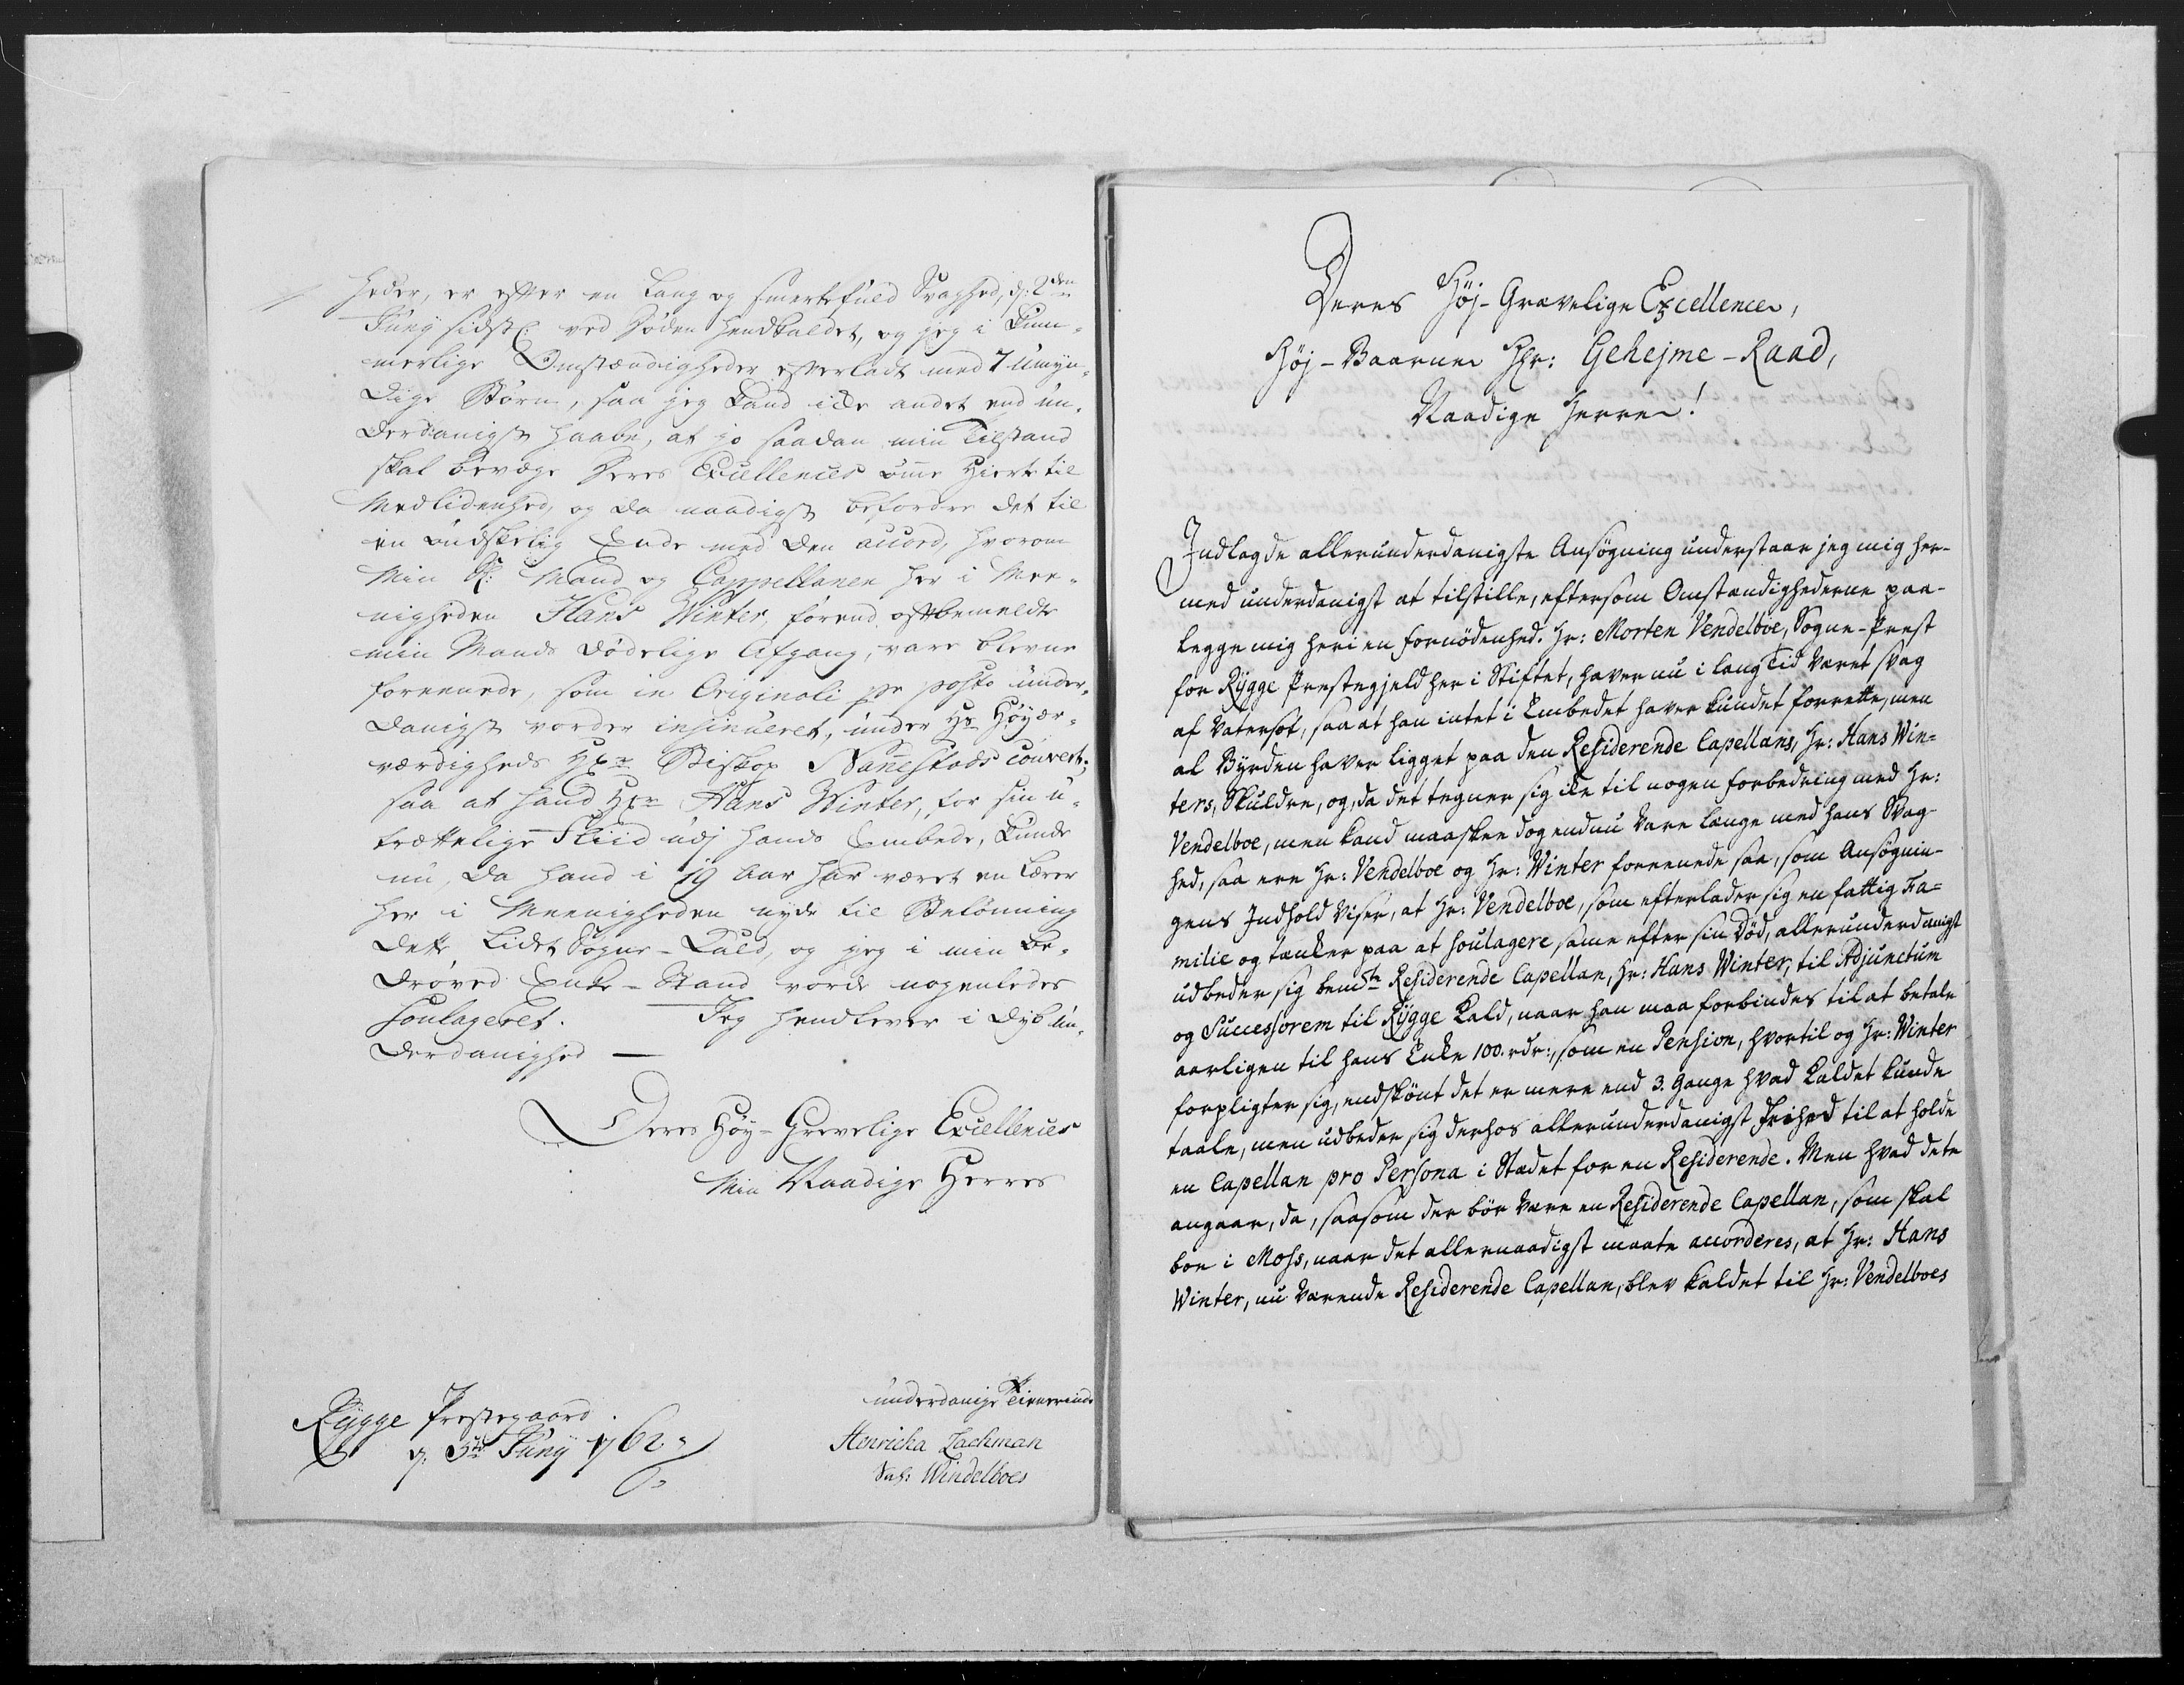 heder, er efter en lang og smertefuld Svaghed, d: 2den
Juny sidstl: ved Døden hendkaldet, og jeg i kum-
merlige Omstændigheder efterladt med 7 umyn-
dige Børn, saa jeg kand icke andet end un-
derdanigst haabe, at jo saadan min Tilstand
skal bevæge Deres Excellences ømme Hierte til
Medlidenhed, og da naadigst befordre det til
en ønskelig Ende med den accord, hvorom
Min Sl: Mand og Cappellanen her i Mee-
nigheden Hans Winter, førend oftbemeldte
min Mands dødelige Afgang, vare blevne
foreenede, som in Originali pr posto under-
danigst vorder insinueret, under Hs Høyær-
værdigheds Hr Biskop Nannestads couvert;
saa at hand Hr Hans Winter, for sin u-
trættelige Fliid udj hands Embede, kunde
nu, da hand i 19 Aar har været en Lærer
her i Meenigheden nyde til Belønning
dette lidet Sogne-Kald, og jeg i min be-
drøved Enke-Stand vorde nogenledes
soulageret. Jeg henlever i dyb un-
derdanighed —
Deres Høy-Grevelige Excellences
Min Naadige Herres
underdanige Tienerinde
Rygge Prestegaard
d: 3de Juny 1762
Henricha Zachman
Sal: Windelboes
Deres Høj-Grævelige Excellence,
Høj-Baarne Hr: Gehejme-Raad,
Naadige Herre!
Indlagde allerunderdanigste Ansøgning understaar jeg mig her-
med underdanigst at tilstille, eftersom Omstændighederne paa-
legge mig heri en fornödenhed. Hr: Morten Vendelboe, Sogne-Prest
for Rygge Prestegjeld her i Stiftet, haver nu i lang Tid været svag
af Vatersot, saa at han intet i Embedet haver kundet forrette, men
al Byrden haver ligget paa den Residerende Capellans, Hr: Hans Win-
ters, Skuldre, og, da det tegner sig icke til nogen forbedring med Hr:
Vendelboe, men kand maaskee dog endnu vare længe med hans Svag-
hed, saa ere Hr: Vendelboe og Hr: Winter foreenede saa, som Ansøgnin-
gens Indhold viser, at Hr: Vendelboe, som efterlader sig en fattig Fa-
milie og tænker paa at soulagere samme efter sin Död, allerunderdanigst
udbeder sig bemte Residerende Capellan, Hr: Hans Winter, til Adjunctum
og Successorem til Rygge Kald, naar han maa forbindes til at betale
aarligen til hans Enke 100. rdr:, som en Pension, hvortil og Hr: Winter
forpligter sig, endskönt det er mere end 3. Gange hvad Kaldet kunde
taale, men udbeder sig derhos allerunderdanigst Frihed til at holde
en Capellan pro Persona i Stædet for en Residerende. Men hvad dette
angaar, da, saasom der bör være en Residerende Capellan, som skal
boe i Moss, naar det allernaadigst maatte accorderes, at Hr: Hans
Winter, nu værende Residerende Capellan, blev kaldet til Hr: Vendelboes